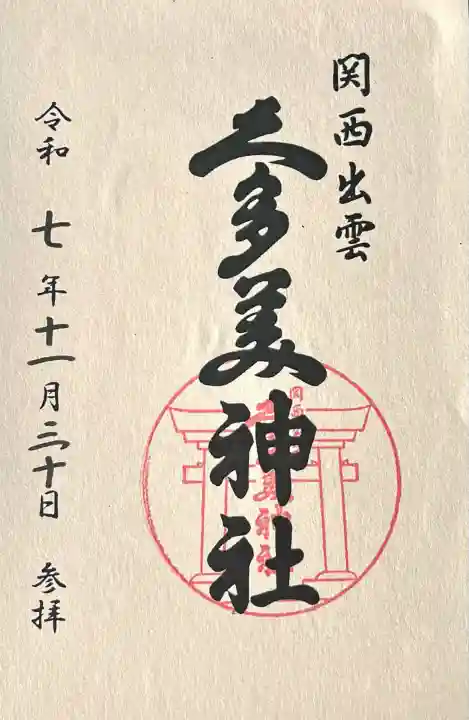 関西出雲
久多美神社
令和七年十一月三十日 参拝